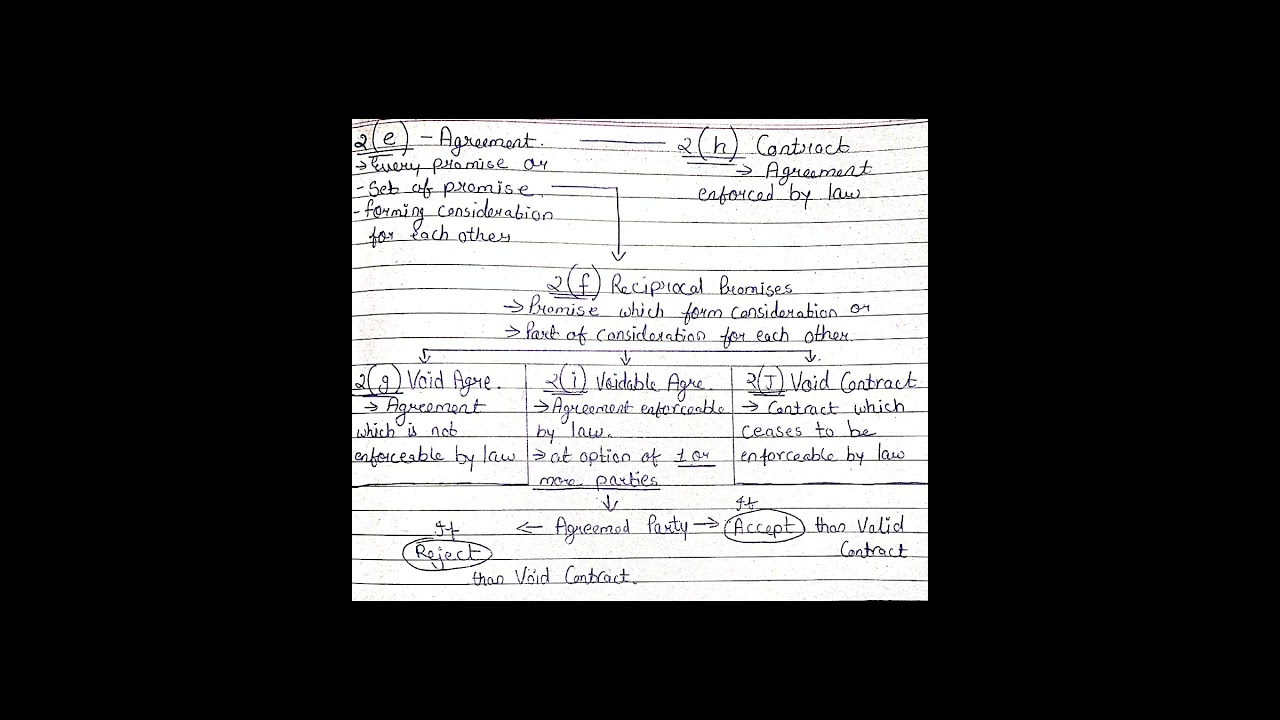 2(e) - Agreement.
→ Every promise or
- Set of promise
- forming consideration
for each other
2(h) Contract
→ Agreement
enforced by law
2(f) Reciprocal Promises
→ Promise which form consideration or
→ Part of consideration for each other.
2(g) Void Agre.
→ Agreement
which is not
enforceable by law
2(i) Voidable Agre.
→ Agreement enforceable
by law.
→ at option of 1 or
more parties
2(J) Void Contract
→ Contract which
ceases to be
enforceable by law
If
If
← Agreemed Party → Accept than Valid
Contract
Reject
than Void Contract.